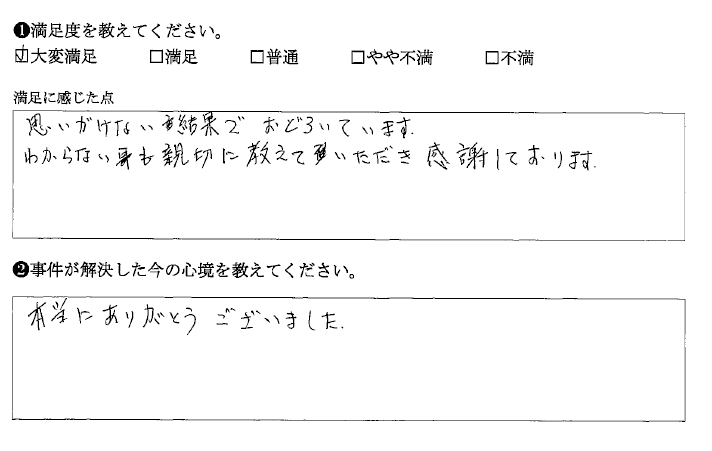 ❶満足度を教えてください。
☑大変満足 □満足 □普通 □やや不満 □不満
満足に感じた点
思いがけない結果で おどろいています.
わからない事も親切に教えていただき 感謝しております.
❷事件が解決した今の心境を教えてください。
本当にありがとう ございました.